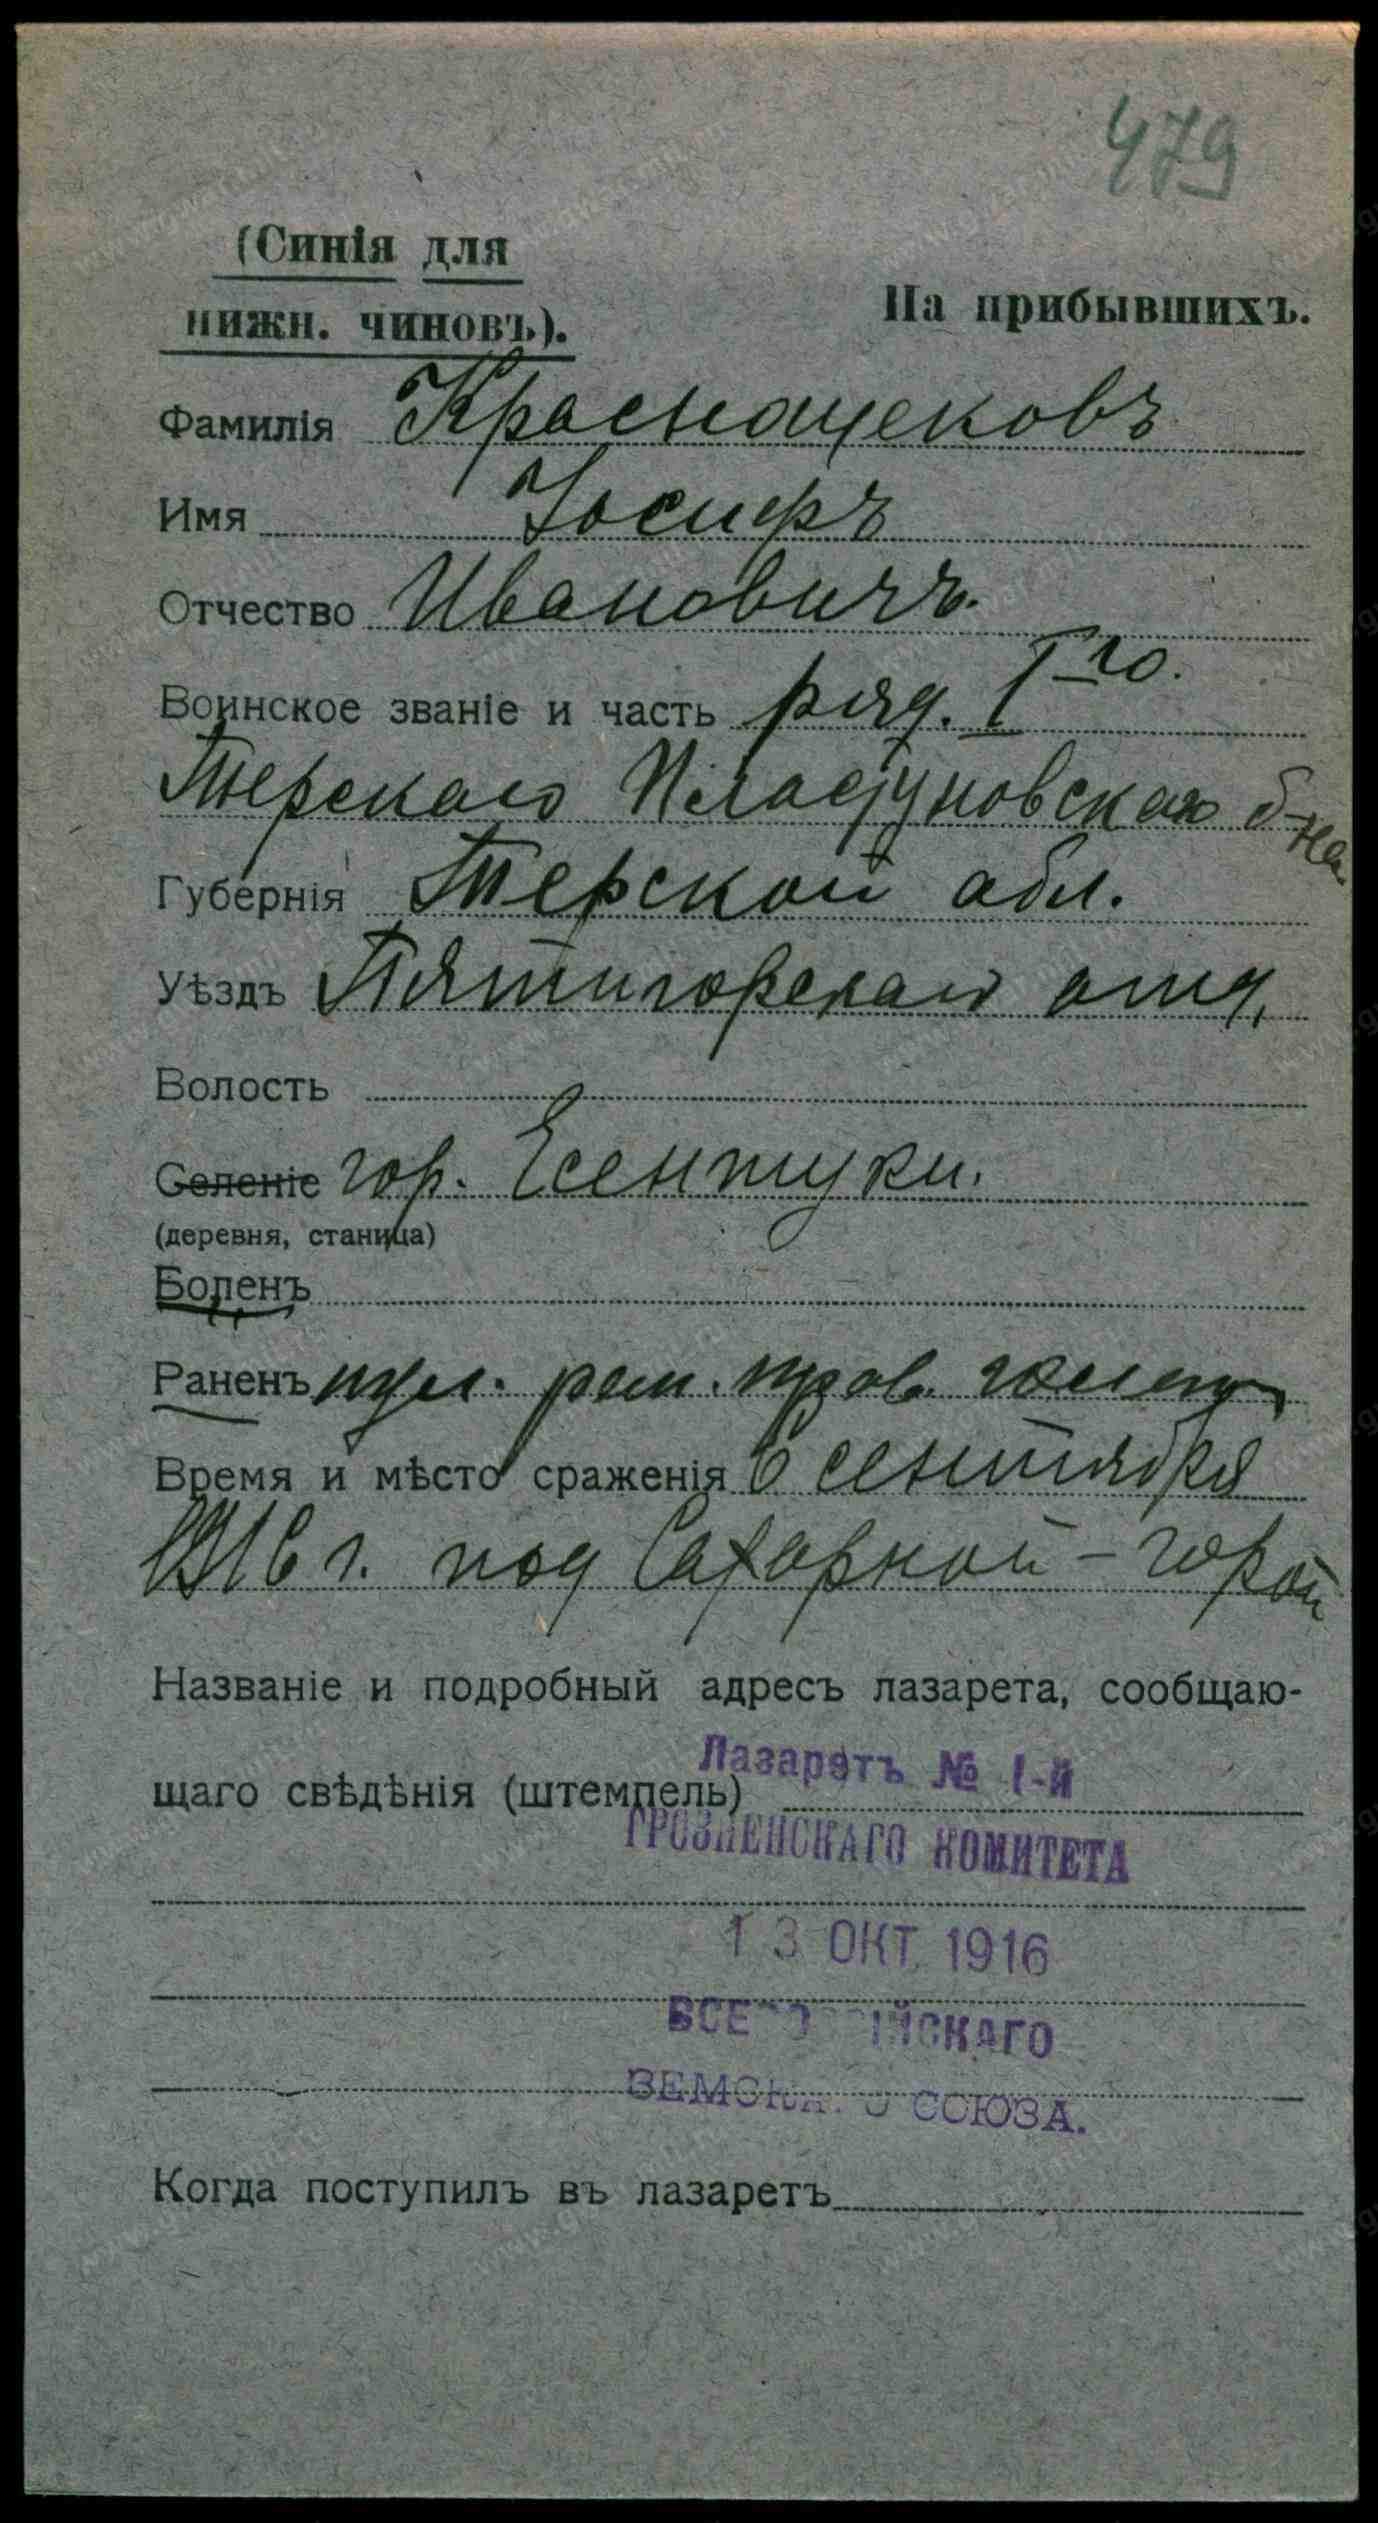 479
(Синія для
нижн. чиновъ).
На прибывшихъ.
Фамилія Краснощековъ
Имя Іосифъ
Отчество Ивановичъ.
Воинское званіе и часть ряд. I го.
Терскаго Пластуновскаго б-на.
Губернія Терской обл.
Уѣздъ Пятигорскаго отд.
Волость
Селеніе гор. Есентуки.
(деревня, станица)
Боленъ
Раненъ пул. ран. прав. голени
Время и мѣсто сраженія 6 сентября
1916 г. под Сахарной-горой
Названіе и подробный адресъ лазарета, сообщаю-
щаго свѣдѣнія (штемпель) Лазаретъ № 1-й
ГРОЗНЕНСКАГО КОМИТЕТА
13 ОКТ. 1916
ВСЕРОССІЙСКАГО
ЗЕМСКАГО СОЮЗА.
Когда поступилъ въ лазаретъ